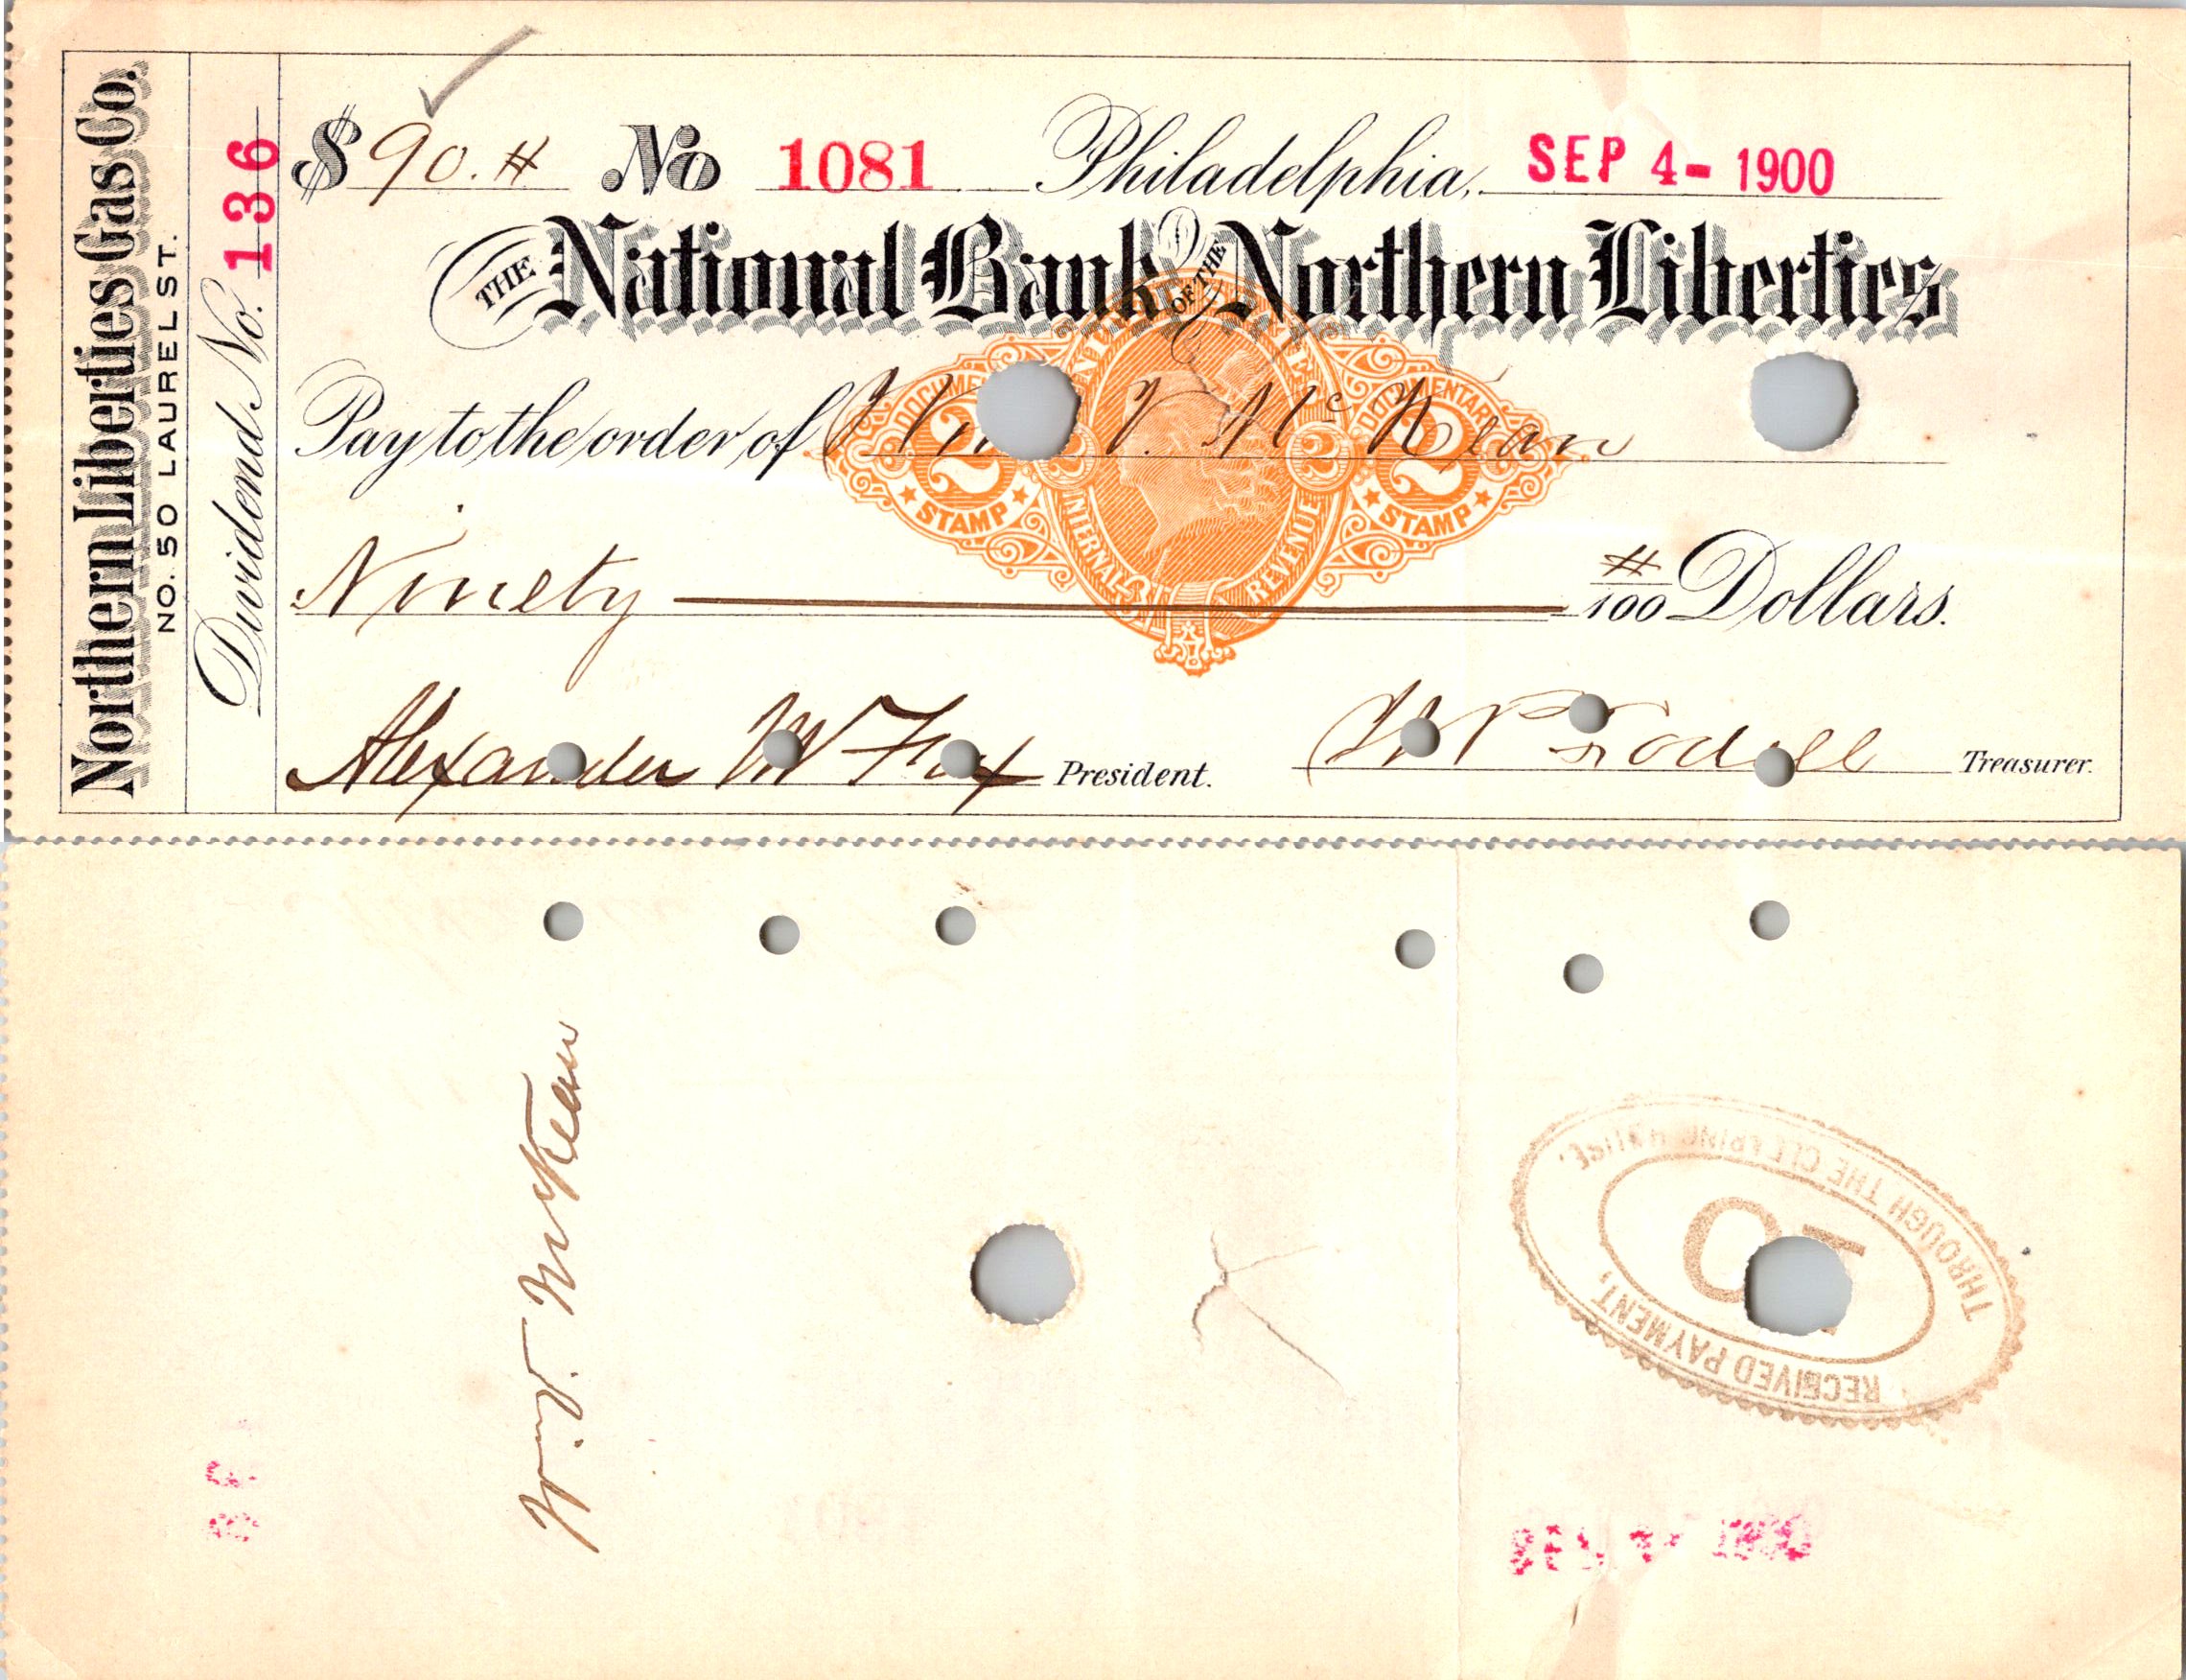 Northern Liberties Gas Co.
NO. 50 LAUREL ST.
Dividend No. 136
$ 90.# No 1081 Philadelphia, SEP 4- 1900
THE National Bank OF THE Northern Liberties
Pay to the order of Wm V. McKean
DOCUMENTARY
2 2 2 2
STAMP STAMP
INTERNAL REVENUE
Ninety # / 100 Dollars.
Alexander W Fox President. Treasurer.
Wm. V. McKean
THROUGH THE CLEARING HOUSE.
RECEIVED PAYMENT,